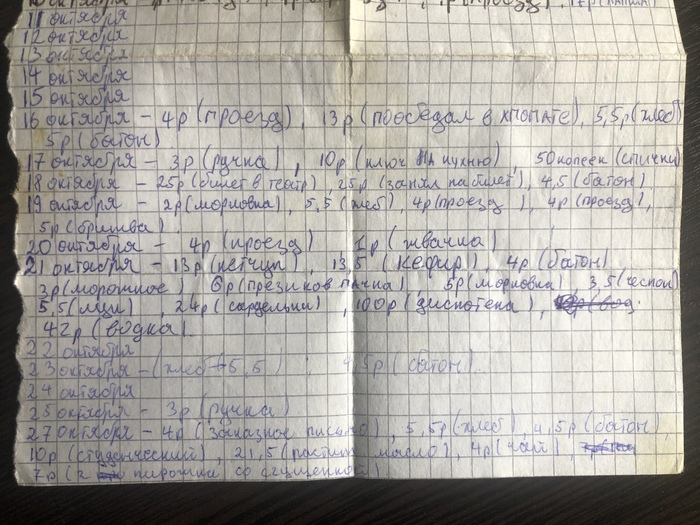 10 октября
11 октября
12 октября
13 октября
14 октября
15 октября
16 октября - 4р (проезд), 13р (пообедал в хпопате), 5,5р (хлеб)
5р (батон)
17 октября - 3р (ручка), 10р (ключ на кухню), 50 копеек (спички)
18 октября - 25р (билет в театр), 25р (занял на билет), 4,5 (батон)
19 октября - 2р (морковка), 5,5 (хлеб), 4р (проезд), 4р (проезд),
5р (бритва)
20 октября - 4р (проезд) 1р (жвачка)
21 октября - 13р (кетчуп), 13,5 (кефир), 4р (батон)
3р (мороженое), 6р (презиков пачка), 5р (морковка), 3,5 (чеснок)
5,5 (яйца), 24р (сардельки), 100р (дискотека),
42р (водка)
22 октября
23 октября - (хлеб 5,5), 4,5р (батон).
24 октября
25 октября - 3р (ручка)
27 октября - 4р (заказное письмо), 5,5р (хлеб), 4,5р (батон),
10р (студенческий), 21,5 (растит. масло), 4р (чай),
7р (2 пирожки со сгущенкой)